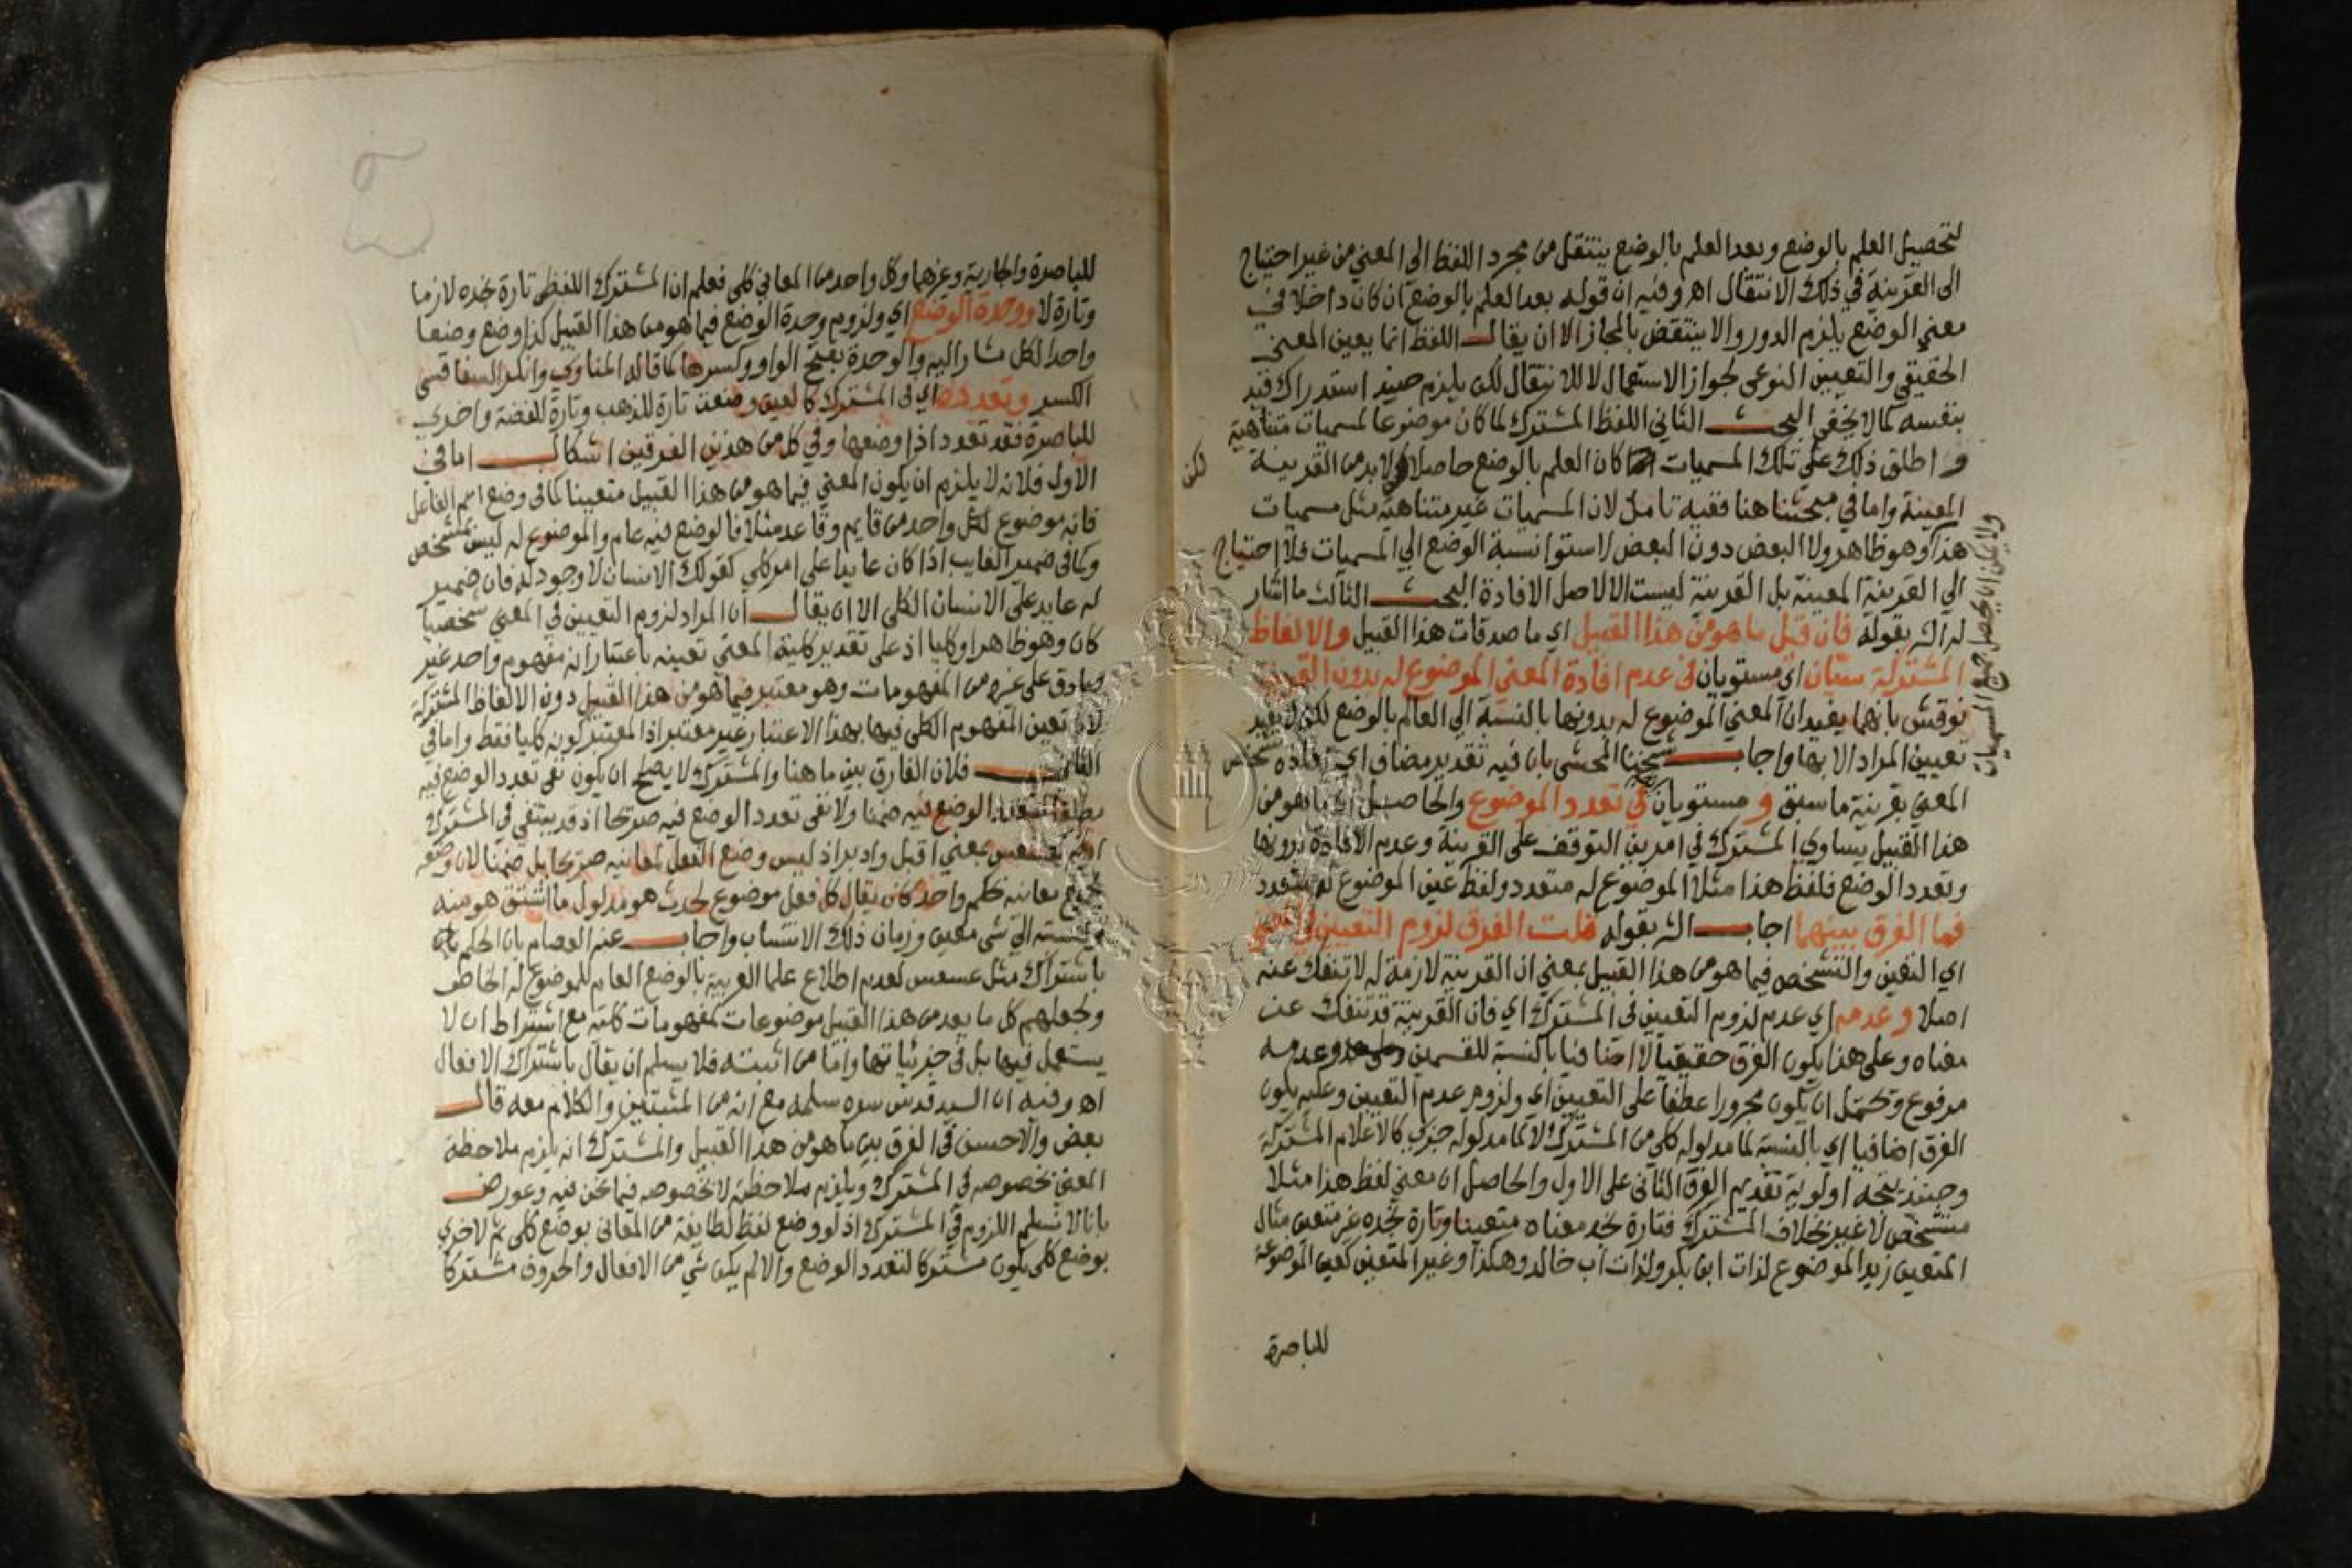 لتحصيل العلم بالوضع وبعد العلم بالوضع ينتقل من مجرد اللفظ الى المعنى من غير احتياج
الى القرينة في ذلك الانتقال اهـ وفيه ان قوله بعد العلم بالوضع ان كان داخلا في
معنى الوضع يلزم الدور والا ينتقض بالمجاز الا ان يقال اللفظ انما يعين المعنى
الحقيقي والتعيين النوعى لجواز الاستعمال لا للانتقال لكن يلزم حينئذ استدراك قيد
بنفسه كما لا يخفى البحث الثاني اللفظ المشترك لما كان موضوعا لمسميات متناهية
و اطلق ذلك على تلك المسميات كان العلم بالوضع حاصلا لا بد من القرينة
لكن
المعينة واما في مبحثنا هنا ففيه تامل لان المسميات غير متناهية مثل مسميات
هذا وهو ظاهر ولا البعض دون البعض لاستوا نسبة الوضع الي المسميات فلا احتياج
ولا يمكن ان يحصل جميع المسميات
الي القرينة المعينة بل القرينة ليست الا لاصل الافادة البحث الثالث ما اشار
له الش بقوله فان قيل ما هو من هذا القبيل اي ما صدقات هذا القبيل والالفاظ
المشتركة سيّان اي مستويان في عدم افادة المعنى الموضوع له بدون القرينة
نوقش بانهما يفيدان المعنى الموضوع له بدونها بالنسبة الي العالم بالوضع لكن لا يفيد
تعيين المراد الا بها واجاب شيخنا المحشى بان فيه تقدير مضاف اي افادة
المعنى بقرينة ما سبق و مستويان في تعدد الموضوع والحاصل ان ما هو من
هذا القبيل يساوي المشترك في امرين التوقف على القرينة وعدم الافادة بدونها
وتعدد الوضع فلفظ هذا مثلا الموضوع له متعدد ولفظ عين الموضوع له متعدد
فما الفرق بينهما اجاب الش بقوله قلت الفرق لزوم التعيين في المعنى
اي التعين والتشخص فيما هو من هذا القبيل بمعنى ان القرينة لازمة له لا تنفك عنه
اصلا وعدمه اي عدم لزوم التعيين في المشترك اي فان القرينة قد تنفك عن
معناه وعلى هذا يكون الفرق حقيقيا لا اضافيا بالنسبة للقسمين وعدمه
مرفوع ويحتمل ان يكون مجرورا عطفا على التعيين اي ولزوم عدم التعيين وعليه يكون
الفرق اضافيا اي بالنسبة لما مدلوله كلي من المشترك لا لما مدلوله جزي كالاعلام المشتركة
وحينئذ يتجه اولوية تقديم الفرق الثانى على الاول والحاصل ان معنى لفظ هذا مثلا
متشخص لا غير بخلاف المشترك فتارة تجد معناه متعينا وتارة تجده غير متعين مثال
المتعين زيد الموضوع لذات ابن بكر ولذات اب خالد وهكذا وغير المتعين كعين الموضوعة
للباصرة
للباصرة والجارية وغيرهما وكل واحد من المعاني كلى فعلم ان المشترك اللفظى تارة تجده لازما
وتارة لا ووحدة الوضع اي ولزوم وحدة الوضع فيما هو من هذا القبيل كذا وضع وضعا
واحدا لكل مشار اليه والوحدة بفتح الواو وكسرها كما قاله المناوي وانكر السفاقسى
الكسر وتعدده اي في المشترك كالعين وضعت تارة للذهب وتارة للفضة واخري
للباصرة فقد تعدد اذا وضعها وفي كل من هذين الفرقين اشكال اما في
الاول فلانه لا يلزم ان يكون المعنى فيما هو من هذا القبيل متعينا كما في وضع اسم الفاعل
فانه موضوع لكل واحد من قايم وقاعد مثلا فالوضع فيه عام والموضوع له ليس بمتشخص
وكما في ضمير الغايب اذا كان عايدا على امر كلي كقولك الانسان لا وجود له فان ضمير
له عايد على الانسان الكلى الا ان يقال ان المراد لزوم التعيين في المعنى شخصيا
كان وهو ظاهر او كليا اذ على تقدير كلية المعنى تعينه باعتبار انه مفهوم واحد غير
صادق على غيره من المفهومات وهو معتبر فيما هو من هذا القبيل دون الالفاظ المشتركة
لان تعين المفهوم الكلى فيها بهذا الاعتبار غير معتبر اذ المعتبر كونه كليا فقط واما في
الثاني فلان الفارق بين ما هنا والمشترك لا يصلح ان يكون نفى تعدد الوضع فيه
الوضع فيه ضمنا ولا نفى تعدد الوضع فيه صريحا اذ قد ينتفي في المشترك
بمعنى اقبل وادبر اذ ليس وضع الفعل لمعانيه صريحا بل ضمنا لان وضعه
معانيه حكم واحد كان يقال كل فعل موضوع لحدث هو مدلول ما اشتق هو منه
ونسبته الى شي معين وزمان ذلك الانتساب واجاب عنه العصام بان الحكم
باشتراك مثل عسعس لعدم اطلاع علما العربية بالوضع العام للموضوع له الخاص
ولجعلهم كل ما يعد من هذا القبيل موضوعات لمفهومات كلية مع اشتراط ان لا
يستعمل فيها بل في جزئياتها واما من اثبته فلا يسلم ان يقال باشتراك الافعال
اهـ وفيه ان السيد قدس سره سلمه مع انه من المثبتين والكلام معه قال
بعض والاحسن في الفرق بين ما هو من هذا القبيل والمشترك انه يلزم ملاحظة
المعنى بخصوصه في المشترك ويلزم ملاحظته لا بخصوصه فيما نحن فيه وعورض
بانا لا نسلم اللزوم في المشترك اذ لو وضع لفظ لطايفة من المعانى بوضع كلى ثم لاخري
بوضع كلى يكون مشتركا لتعدد الوضع والا لم يكن شي من الافعال والحروف مشتركا